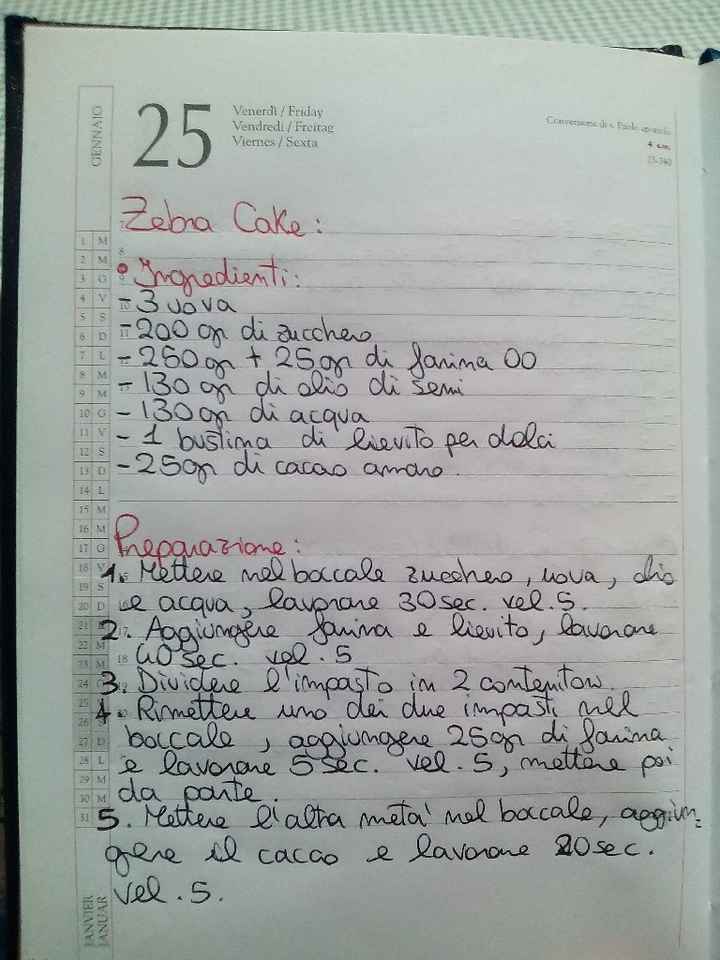 GENNAIO
25
Venerdì / Friday
Vendredi / Freitag
Viernes / Sexta
Conversione di s. Paolo apostolo
4 sett.
25-340
Zebra Cake:
Ingredienti:
- 3 uova
- 200 gr di zucchero
- 250 gr + 25 gr di farina 00
- 130 gr di olio di semi
- 130 gr di acqua
- 1 bustina di lievito per dolci
- 25 gr di cacao amaro.
Preparazione:
1. Mettere nel boccale zucchero, uova, olio
e acqua, lavorare 30 sec. vel. 5.
2. Aggiungere farina e lievito, lavorare
40 sec. vel. 5
3. Dividere l'impasto in 2 contenitori.
4. Rimettere uno dei due impasti nel
boccale, aggiungere 25 gr di farina
e lavorare 5 sec. vel. 5, mettere poi
da parte.
5. Mettere l'altra metà nel boccale, aggiun=
gere il cacao e lavorare 20 sec.
vel. 5.
1 M
2 M
3 G
4 V
5 S
6 D
7 L
8 M
9 M
10 G
11 V
12 S
13 D
14 L
15 M
16 M
17 G
18 V
19 S
20 D
21
22 M
23 M
24
25
26
27 D
28 L
29 M
30 M
31
JANVIER
JANUAR